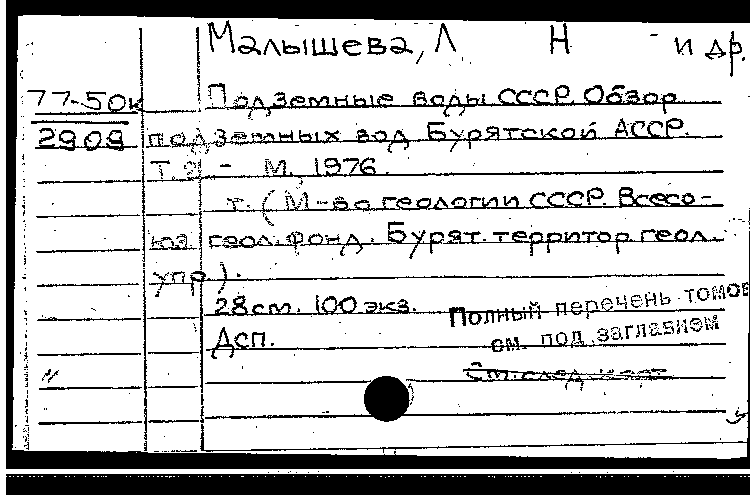 Малышева, Л Н и др.
77-50к Подземные воды СССР. Обзор
2909 подземных вод Бурятской АССР.
Т. - М, 1976.
т. (М-во геологии СССР. Всесо-
юз геол. фонд. Бурят. территор. геол.
упр).
28 см. 100 экз.
Дсп.
Полный перечень томов
см. под заглавием